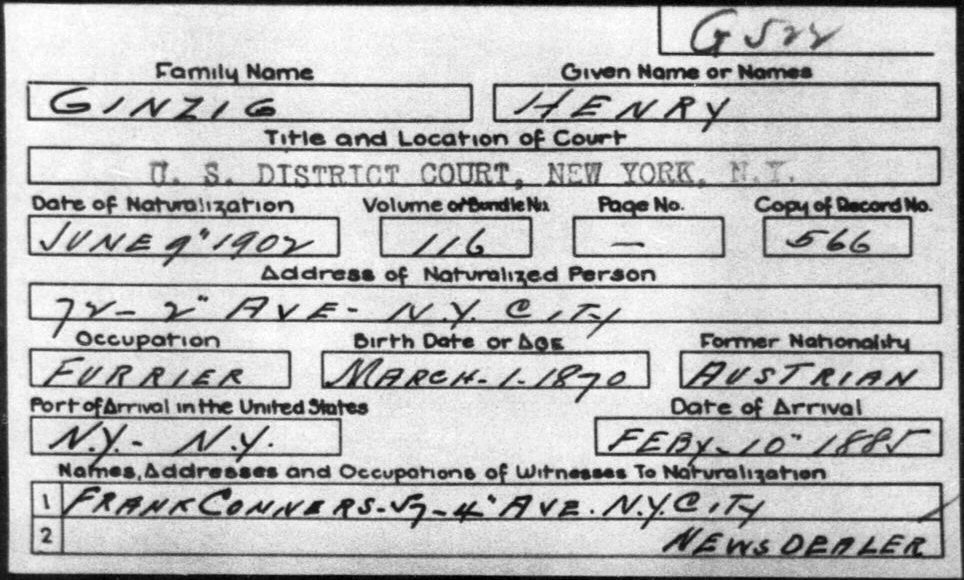 G 522
Family Name Given Name or Names
GINZIG HENRY
Title and Location of Court
U. S. DISTRICT COURT, NEW YORK, N.Y.
Date of Naturalization Volume or Bundle No. Page No. Copy of Record No.
JUNE 9" 1902 116 — 566
Address of Naturalized Person
72 - 2" AVE - N.Y. CITY
Occupation Birth Date or Age Former Nationality
FURRIER MARCH - 1 - 1870 AUSTRIAN
Port of Arrival in the United States Date of Arrival
N.Y. - N.Y. FEBY - 10" 1885
Names, Addresses and Occupations of Witnesses To Naturalization
1 FRANK CONNERS - 57 - 4" AVE. N.Y. CITY
2 NEWSDEALER